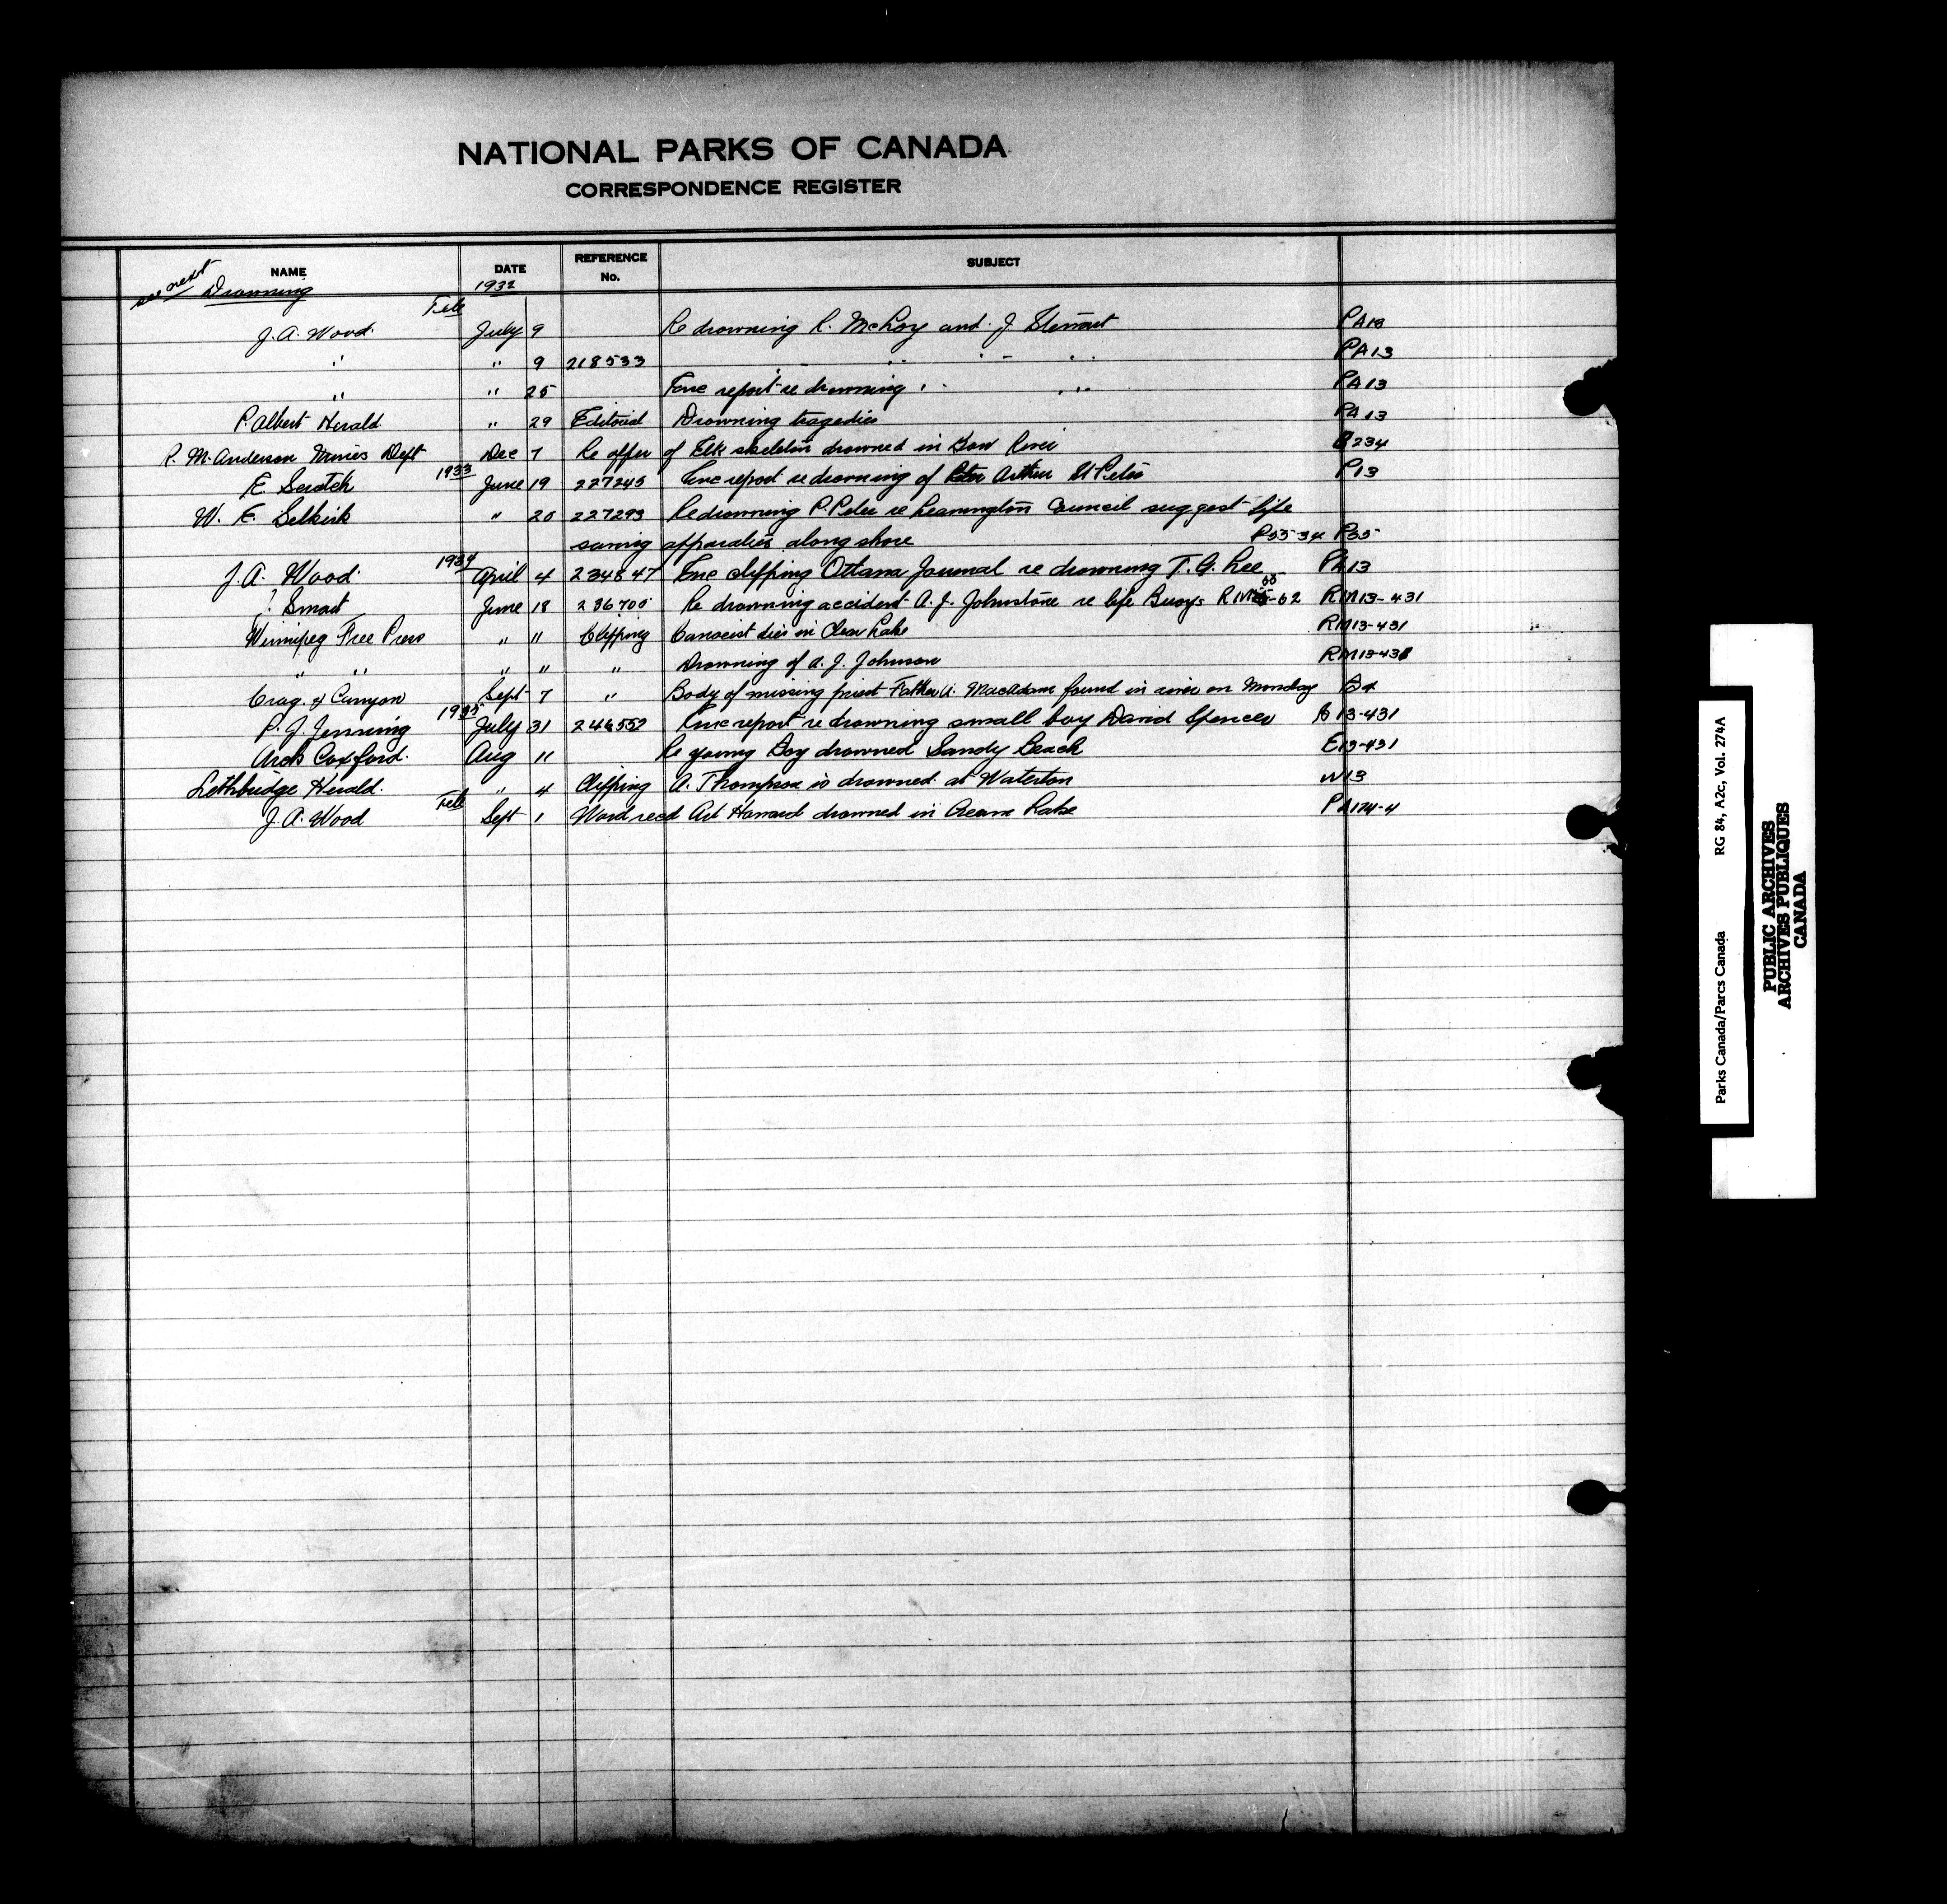 NATIONAL PARKS OF CANADA
CORRESPONDENCE REGISTER
NAME DATE REFERENCE No. SUBJECT
see next Drowning 1932
J. A. Wood Tele July 9 Re drowning R. McKoy and J. Stewart PA13
" " 9 218533 " " - " PA13
" " 25 Enc report re drowning " " " PA13
P. Albert Herald " 29 Editorial Drowning tragedies PA13
R. M. Anderson Mines Dept Dec 7 Re offer of Elk skeleton drowned in Bow River B234
E. Scratch 1933 June 19 227245 Enc report re drowning of Arthur St Peter P13
W. E. Selkirk " 20 227293 Re drowning P. Peter re Leamington Council suggest life
saving apparatus along shore P55-34 P35
J. A. Wood 1934 April 4 234847 Enc clipping Ottawa Journal re drowning T. G. Lee PA13
J. Smart June 18 236705 Re drowning accident A. J. Johnstone re life Buoys RM55-62 RM13-431
Winnipeg Free Press " 11 Clipping Canoeist dies in Clear Lake RM13-431
" " " 11 " Drowning of A. J. Johnson RM13-431
Crag & Canyon Sept 7 " Body of missing priest Father A. MacAdam found in river on Monday B4
P. J. Jennings 1935 July 31 246552 Enc report re drowning small boy David Spencer B13-431
Arch Coxford. Aug 11 Re young Boy drowned Sandy Beach E13-431
Lethbridge Herald. " 4 Clipping A. Thompson is drowned at Waterton W13
J. A. Wood Tele Sept 1 Word recd Art Howard drowned in Crean Lake PA174-4
Parks Canada/Parcs Canada RG 84, A2c, Vol. 274A
PUBLIC ARCHIVES
ARCHIVES PUBLIQUES
CANADA